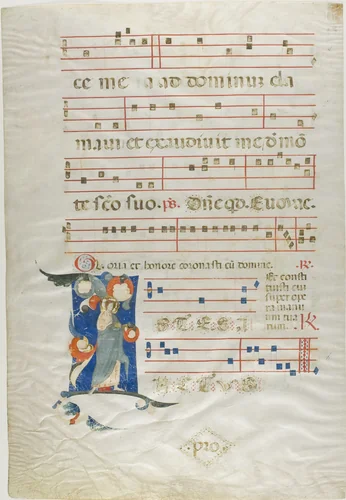 ce mea ad dominuz cla
maui et exaudiuit me de mo
te sco suo. ps. Dne qd. Euouae.
Gloria et honore coronasti eu domine. R.
Et consti
tuisti eu
super ope
ra manu
um tua
rum. R
pro